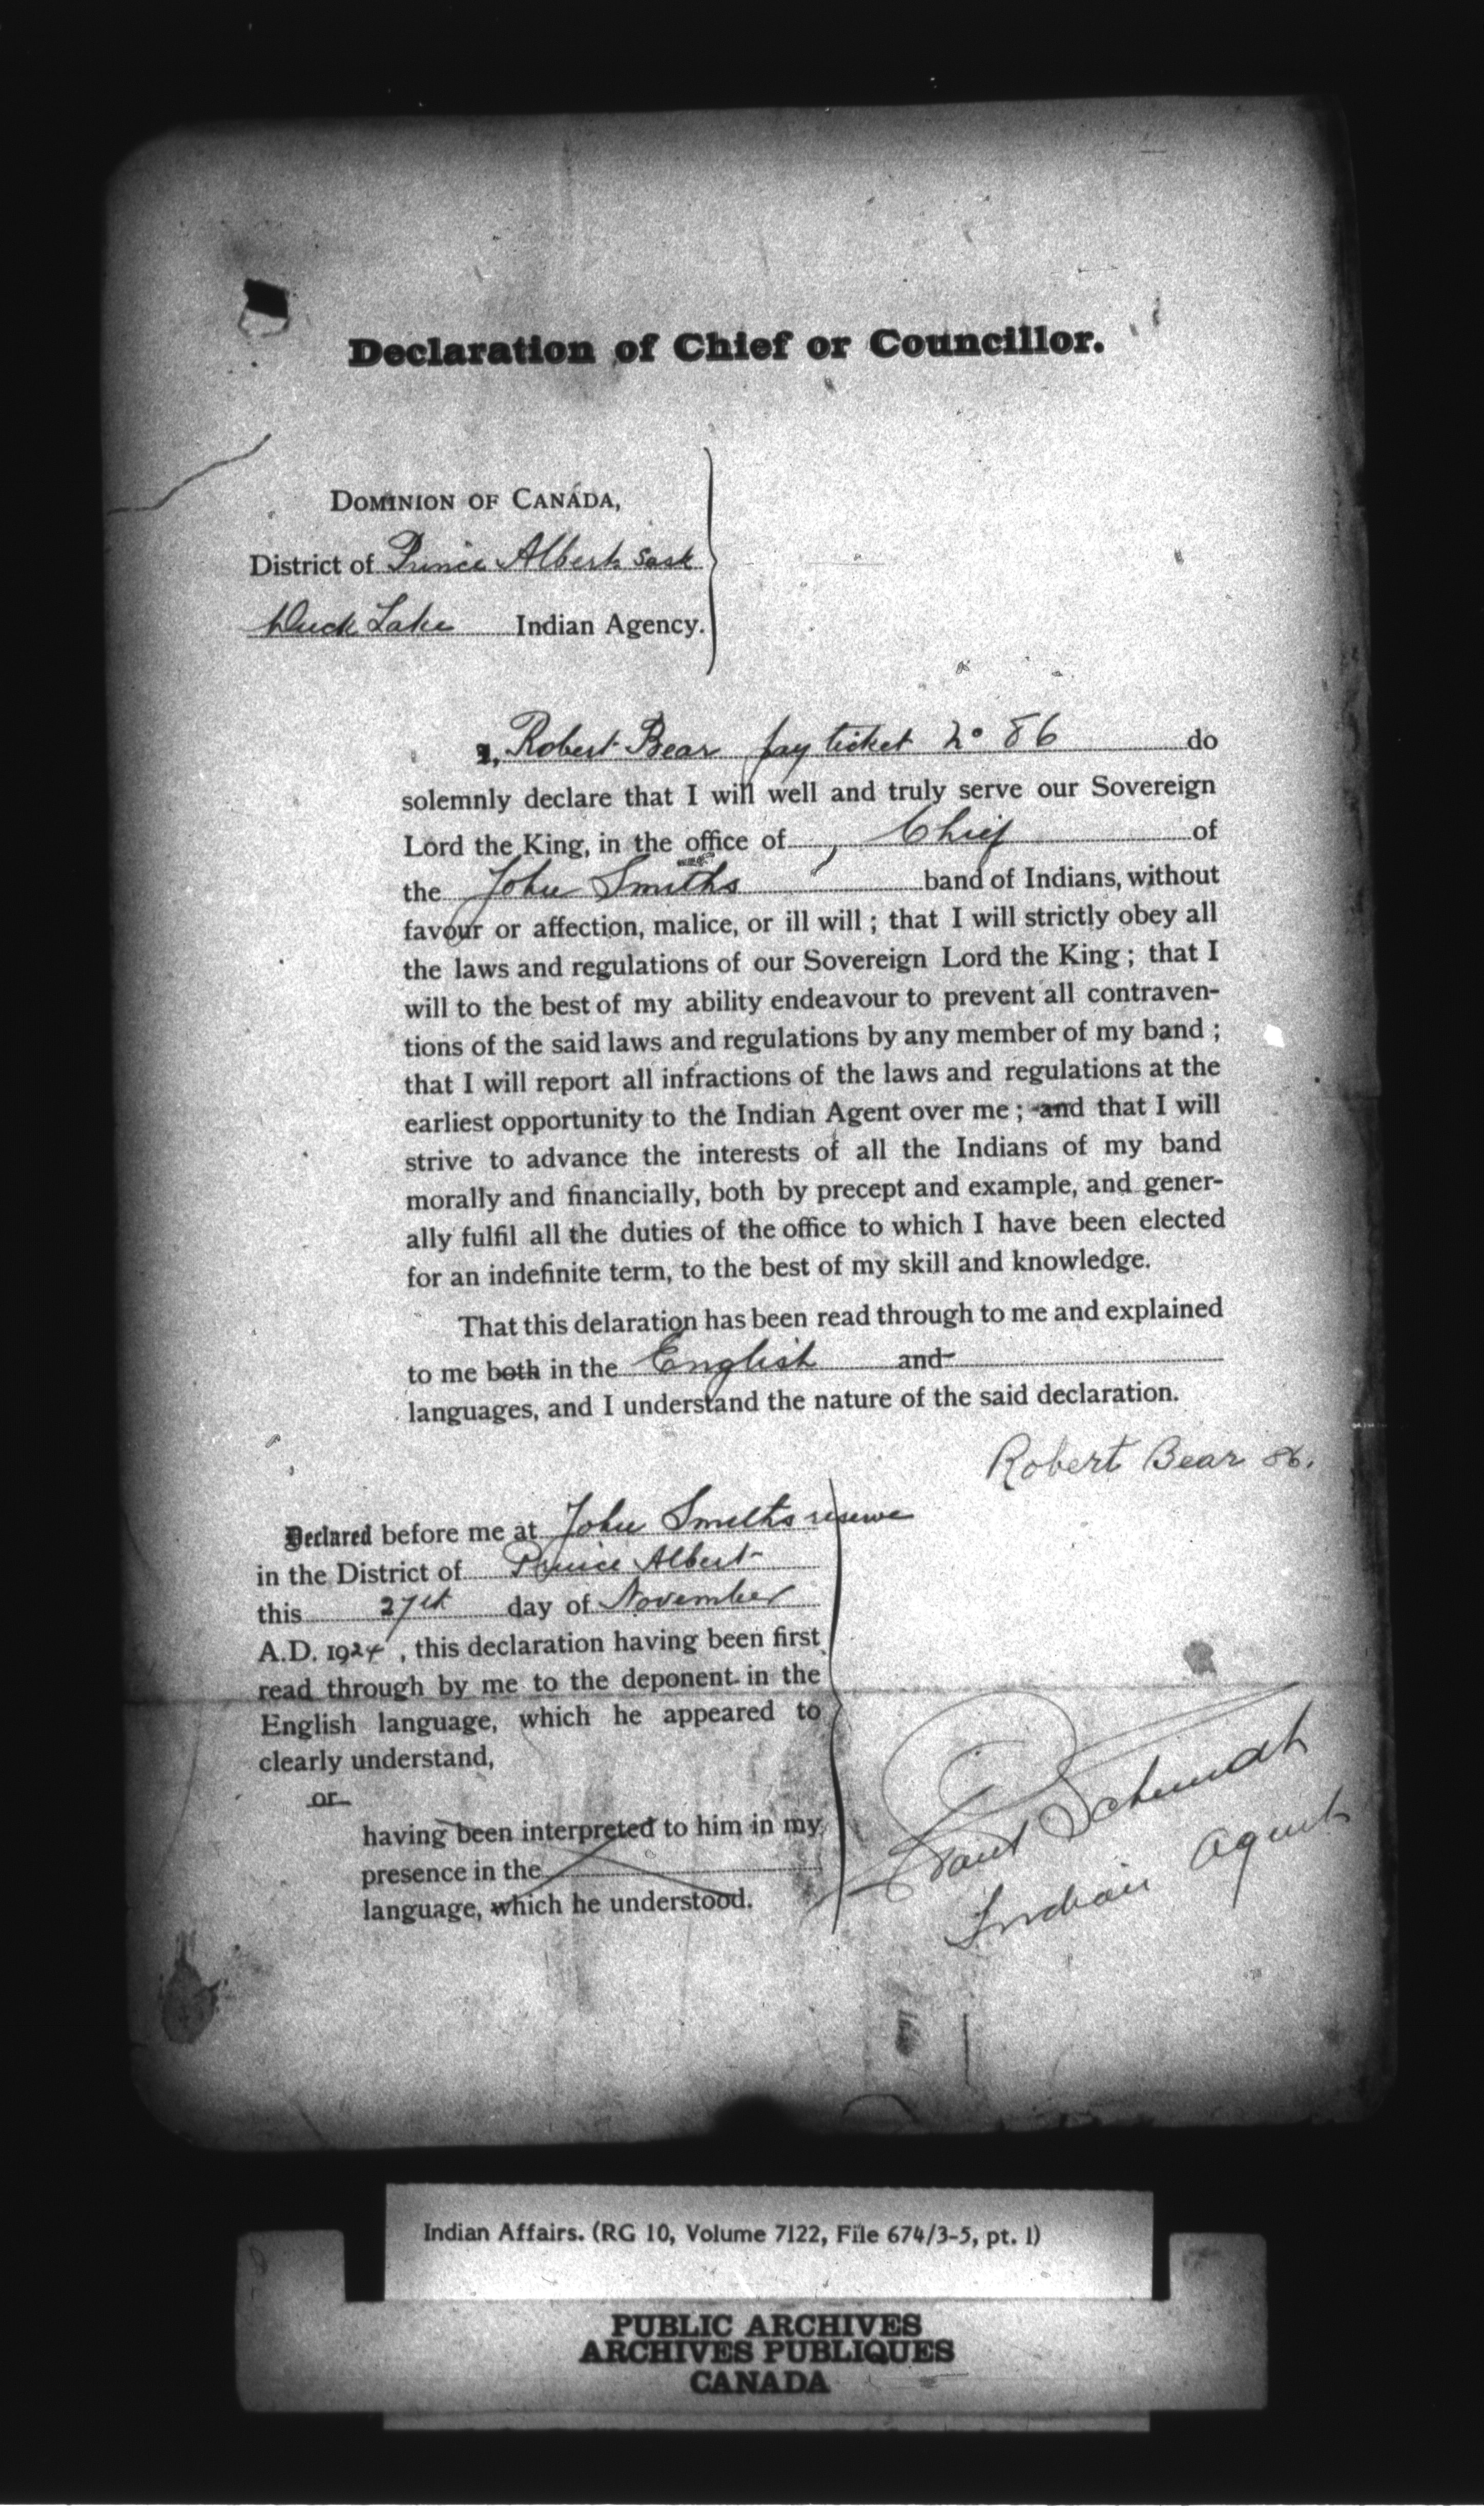 Declaration of Chief or Councillor.
DOMINION OF CANADA,
District of Prince Albert Sask
Duck Lake Indian Agency.
I, Robert Bear pay ticket No 86 do
solemnly declare that I will well and truly serve our Sovereign
Lord the King, in the office of Chief of
the John Smiths band of Indians, without
favour or affection, malice, or ill will ; that I will strictly obey all
the laws and regulations of our Sovereign Lord the King ; that I
will to the best of my ability endeavour to prevent all contraven-
tions of the said laws and regulations by any member of my band ;
that I will report all infractions of the laws and regulations at the
earliest opportunity to the Indian Agent over me ; and that I will
strive to advance the interests of all the Indians of my band
morally and financially, both by precept and example, and gener-
ally fulfil all the duties of the office to which I have been elected
for an indefinite term, to the best of my skill and knowledge.
That this delaration has been read through to me and explained
to me both in the English and
languages, and I understand the nature of the said declaration.
Robert Bear 86.
Declared before me at John Smiths reserve
in the District of Prince Albert
this 27th day of November
A.D. 1924 , this declaration having been first
read through by me to the deponent in the
English language, which he appeared to
clearly understand,
or
having been interpreted to him in my
presence in the
language, which he understood.
Schmidt
Indian Agent
Indian Affairs. (RG 10, Volume 7122, File 674/3-5, pt. 1)
PUBLIC ARCHIVES
ARCHIVES PUBLIQUES
CANADA